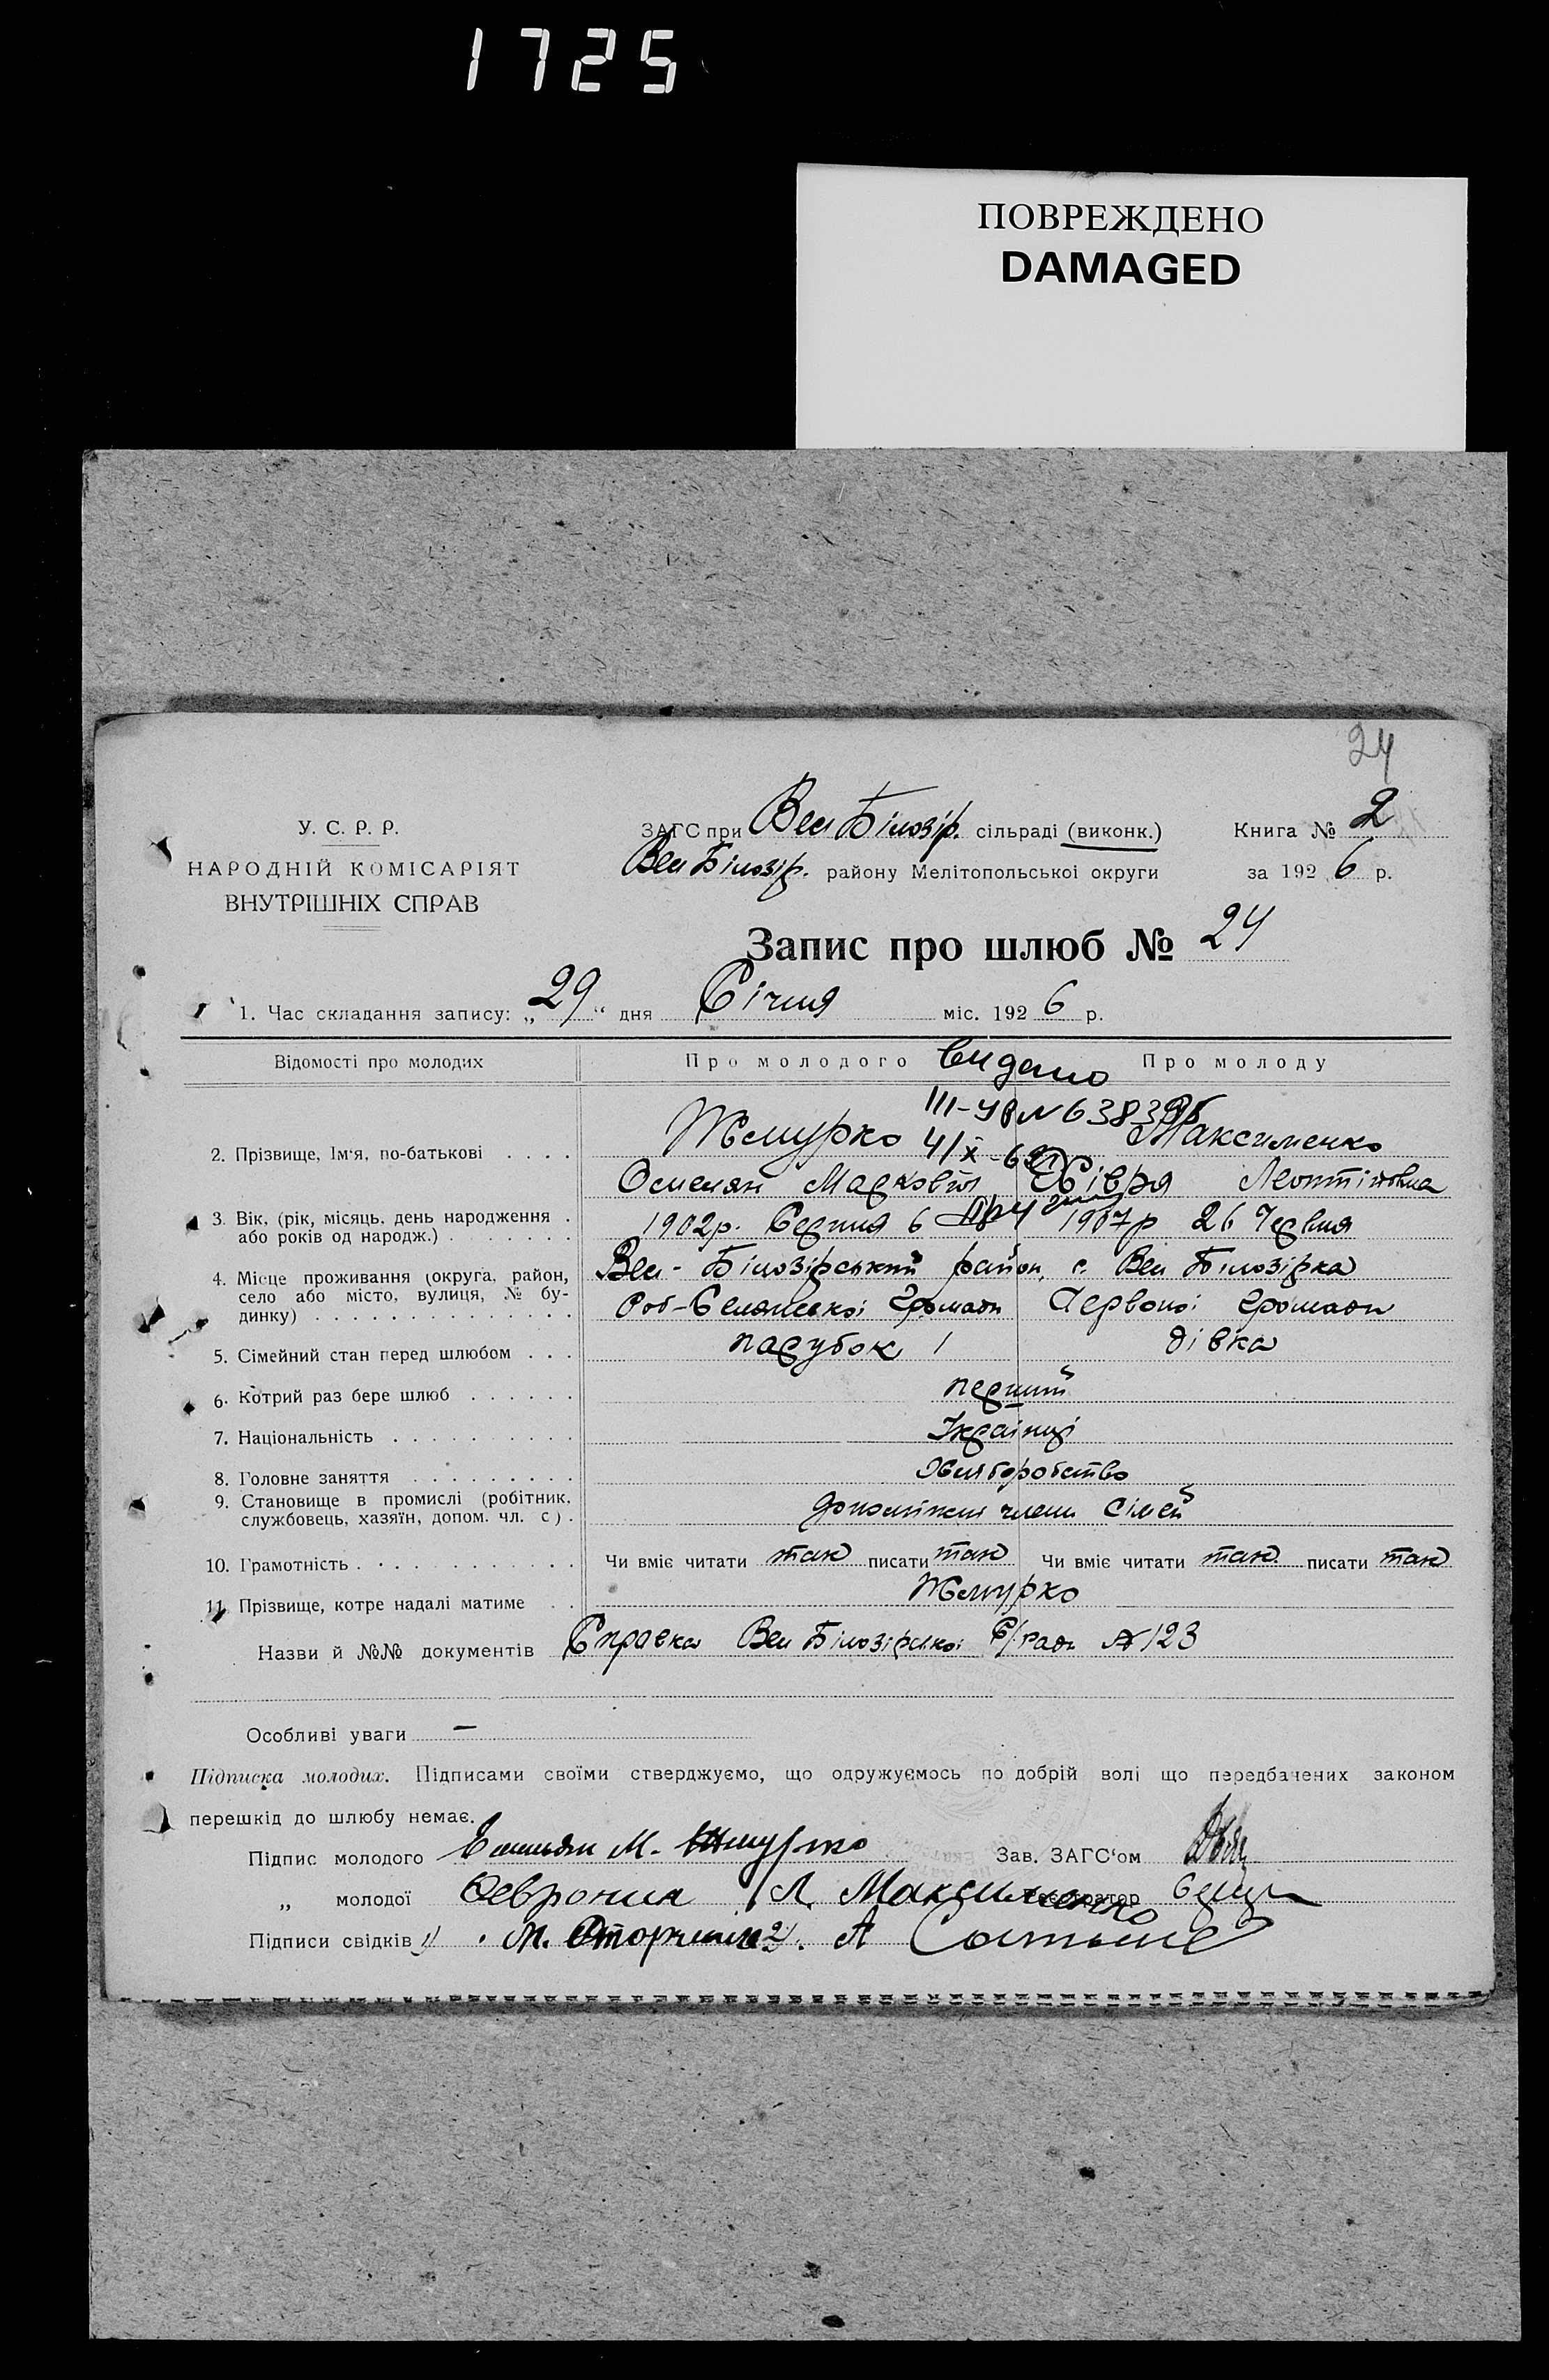 1725
ПОВРЕЖДЕНО
DAMAGED
24
У. С. Р. Р.
НАРОДНІЙ КОМІСАРІЯТ
ВНУТРІШНІХ СПРАВ
ЗАГС при Вел Білозір. сільраді (виконк.)
Вел Білозір. району Мелітопольської округи
Книга № 2
за 1926 р.
Запис про шлюб № 24
1. Час складання запису: „29“ дня Січня міс. 1926 р.
Відомості про молодих
Про молодого
Про молоду
Видано
III-УР № 638395
4/X-69
2. Прізвище, Ім'я, по-батькові . . . .
Жмурко
Максименко
Омелян Маркович
Хівря Леонтіївна
3. Вік, (рік, місяць, день народження .
або років од народж.) . . . . . . .
1902р. Серпня 6
1907р 26 Червня
4. Місце проживання (округа, район,
село або місто, вулиця, № бу-
динку) . . . . . . . . . . . . . .
Вел-Білозірський район, с. Вел Білозірка
Роб-Селянської громади
Червоної громади
5. Сімейний стан перед шлюбом . . .
парубок
дівка
6. Котрий раз бере шлюб . . . . . .
перший
7. Національність . . . . . . . . . .
Українці
8. Головне заняття . . . . . . . . .
Хліборобство
9. Становище в промислі (робітник,
службовець, хазяїн, допом. чл. с) .
допоміжні члени сімей
10. Грамотність . . . . . . . . . . . .
Чи вміє читати так писати так
Чи вміє читати так писати так
11. Прізвище, котре надалі матиме . .
Жмурко
Назви й №№ документів Справка Вел Білозірської С/ради № 123
Особливі уваги —
Підписка молодих. Підписами своїми стверджуємо, що одружуємось по добрій волі що передбачених законом
перешкід до шлюбу немає.
Підпис молодого Емильян М. Жмурко
Зав. ЗАГС'ом
„ молодої Феврония Л. Максименко
Реєстратор
Підписи свідків 1) М. 2). А